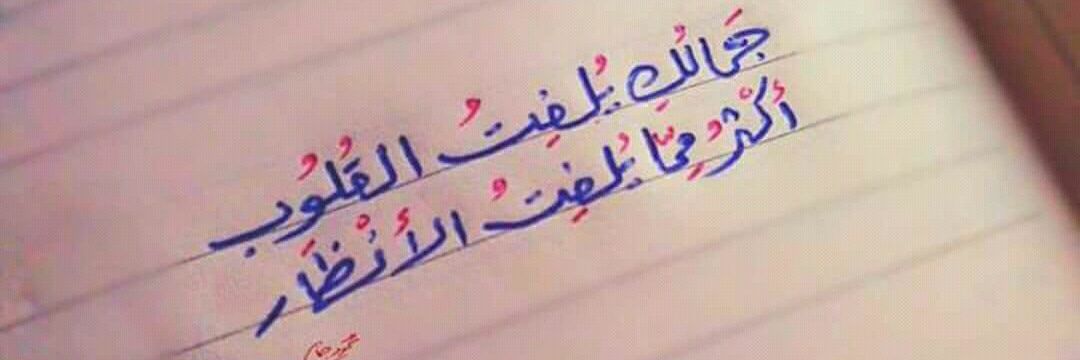 جَمَالُكِ يُلفِتُ القُلُوب
أَكْثَرُ مِمَّا يُلفِتُ الأَنْظَار